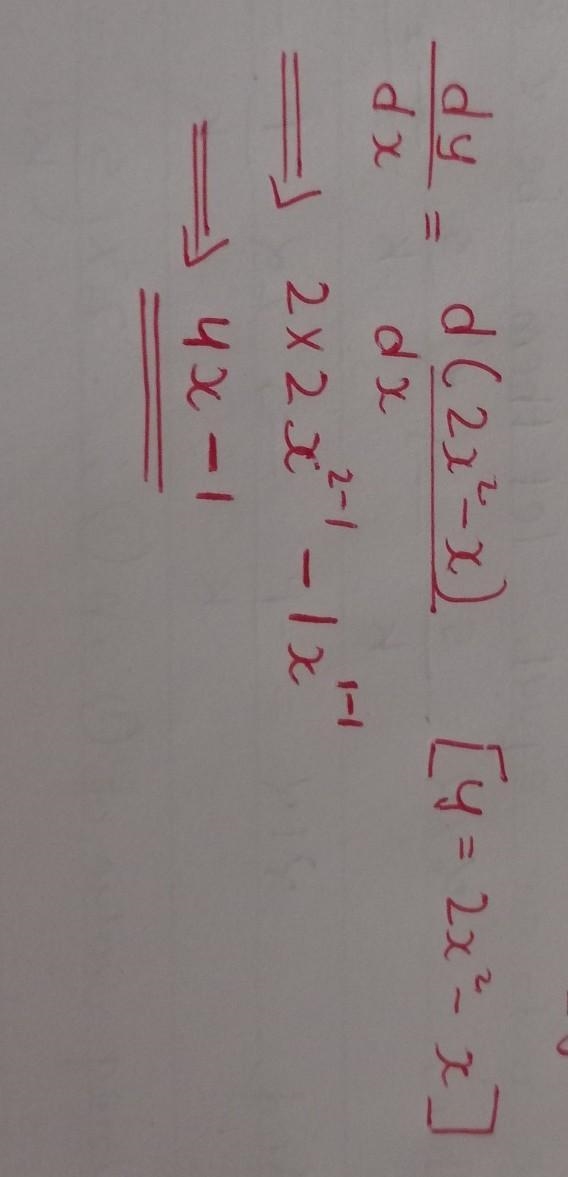 dy/dx = d(2x²-x)/dx [y = 2x² - x]
⇒ 2×2x²⁻¹ - 1x¹⁻¹
⇒ 4x - 1